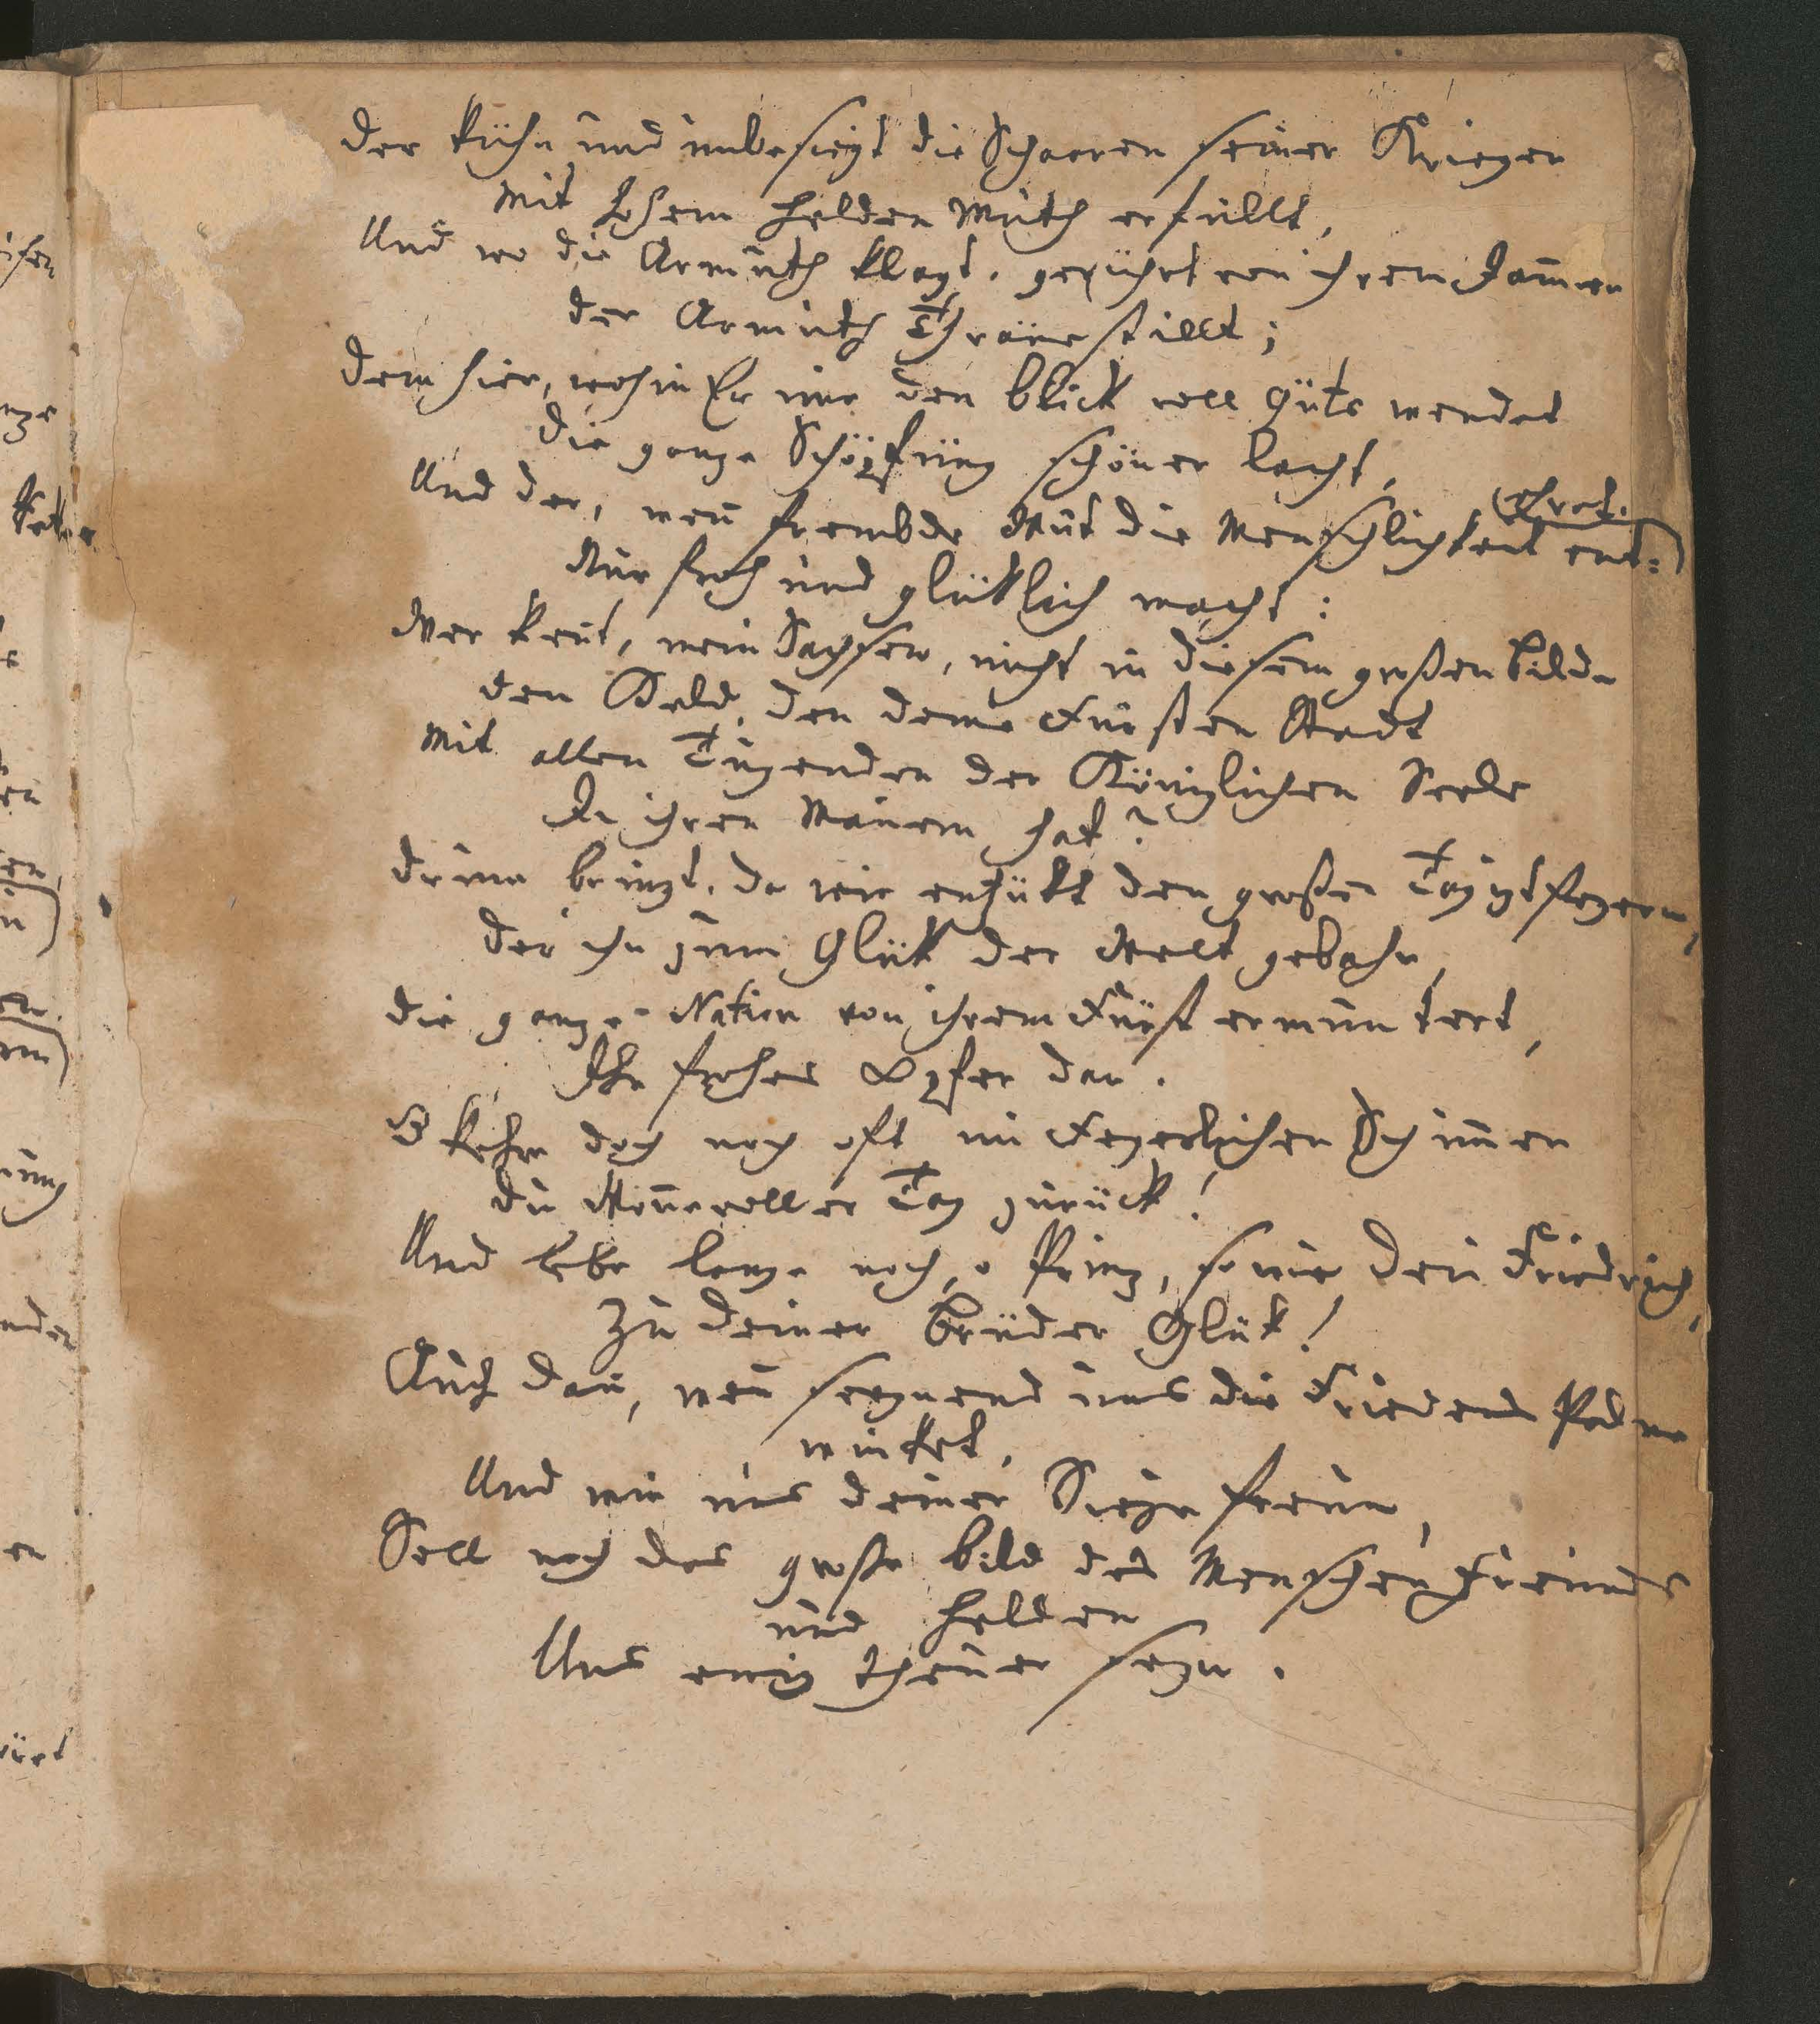 Der kühn und unbesiegt die Schaaren seiner Krieger
Mit hohem Helden Muth erfüllt,
Und wo die Armuth klagt, gerührt von ihrem Jam̄er
Der Armuth Thräne stillt;
Dem hier, wohin Er nur den Blick voll Güte wendet
Die ganze Schöpfung schöner lacht,
Und der, wen̄ frembde Wut die Menschlichkeit ent=
(ehret.
Nur froh und glüklich macht:
Wer kent, mein Sachsen, nicht in diesem großen Bilde
Den Held, den deine Fürsten Stadt
Mit allen Tugenden der Königlichen Seele
In ihren Mauern hat?
Drum bringt, da wir entzükt den großen Tag izt feyern,
Der ihn zum Glük der Welt gebahr,
Die ganze Nation von ihrem Fürst ermuntert,
Ihr frohes Opfer dar.
O kehre doch noch oft im Feyerlichen Schim̄er
Du Won̄evoller Tag zurück!
Und lebe lange noch, o Prinz, so wie dein Friedrich,
Zu deiner Brüder Glük!
Auch dan̄, wen̄ seegnend uns die Friedens Palme
winket,
Und wir uns deiner Siege freun,
Soll noch das große Bild des Menschen Freundes
und Helden
Uns ewig theuer seyn.